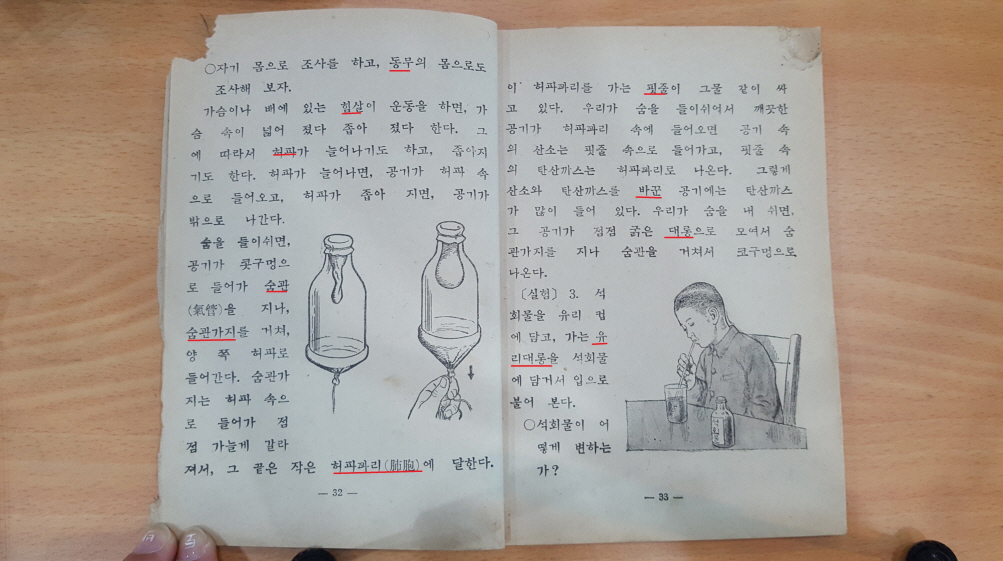 ○자기 몸으로 조사를 하고, 동무의 몸으로도
조사해 보자.
가슴이나 배에 있는 힘살이 운동을 하면, 가
슴 속이 넓어 졌다 좁아 졌다 한다. 그
에 따라서 허파가 늘어나기도 하고, 좁아지
기도 한다. 허파가 늘어나면, 공기가 허파 속
으로 들어오고, 허파가 좁아 지면, 공기가
밖으로 나간다.
숨을 들이쉬면,
공기가 콧구멍으
로 들어가 숨관
(氣管)을 지나,
숨관가지를 거쳐,
양 쪽 허파로
들어간다. 숨관가
지는 허파 속으
로 들어가 점
점 가늘게 갈라
져서, 그 끝은 작은 허파파리(肺胞)에 달한다.
— 32 —
이 허파파리를 가는 핏줄이 그물 같이 싸
고 있다. 우리가 숨을 들이쉬어서 깨끗한
공기가 허파파리 속에 들어오면 공기 속
의 산소는 핏줄 속으로 들어가고, 핏줄 속
의 탄산까스는 허파파리로 나온다. 그렇게
산소와 탄산까스를 바꾼 공기에는 탄산까스
가 많이 들어 있다. 우리가 숨을 내 쉬면,
그 공기가 점점 굵은 대롱으로 모여서 숨
관가지를 지나 숨관을 거쳐서 코구멍으로
나온다.
〔실험〕 3. 석
회물을 유리 컵
에 담고, 가는 유
리대롱을 석회물
에 담거서 입으로
불어 본다.
○석회물이 어
떻게 변하는
가?
석회물
— 33 —